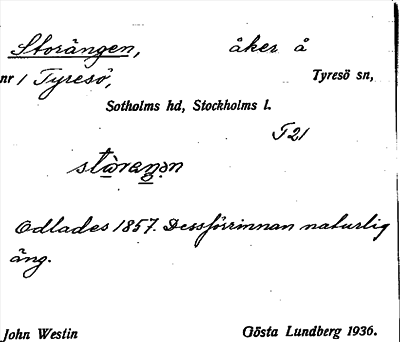 Storängen, åker å
nr 1 Tyresö, Tyresö sn,
Sotholms hd, Stockholms l.
T21
Odlades 1857. Dessförinnan naturlig
äng.
John Westin Gösta Lundberg 1936.